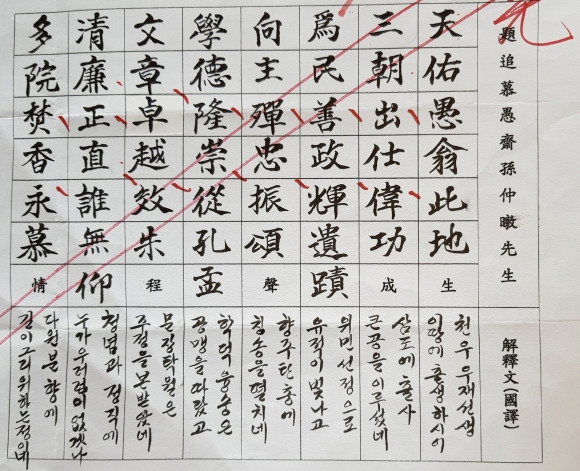 題追慕愚齋孫仲暾先生
天佑愚翁此地生
三朝出仕偉功成
爲民善政輝遺蹟
向主殫忠振頌聲
學德隆崇從孔孟
文章卓越效朱程
清廉正直誰無仰
多院焚香永慕情
解釋文(國譯)
천우우재선생
이땅에 출생하시어
삼조에 출사
큰공을 이루셨네
위민선정으로
유적이 빛나고
향주탄충에
칭송을 떨치네
학덕융숭은
공맹을 따랐고
문장탁월은
주정을 본받았네
청념과 정직에
누가우러럼이 없겠나
다원분향에
길이그리워하는정이네